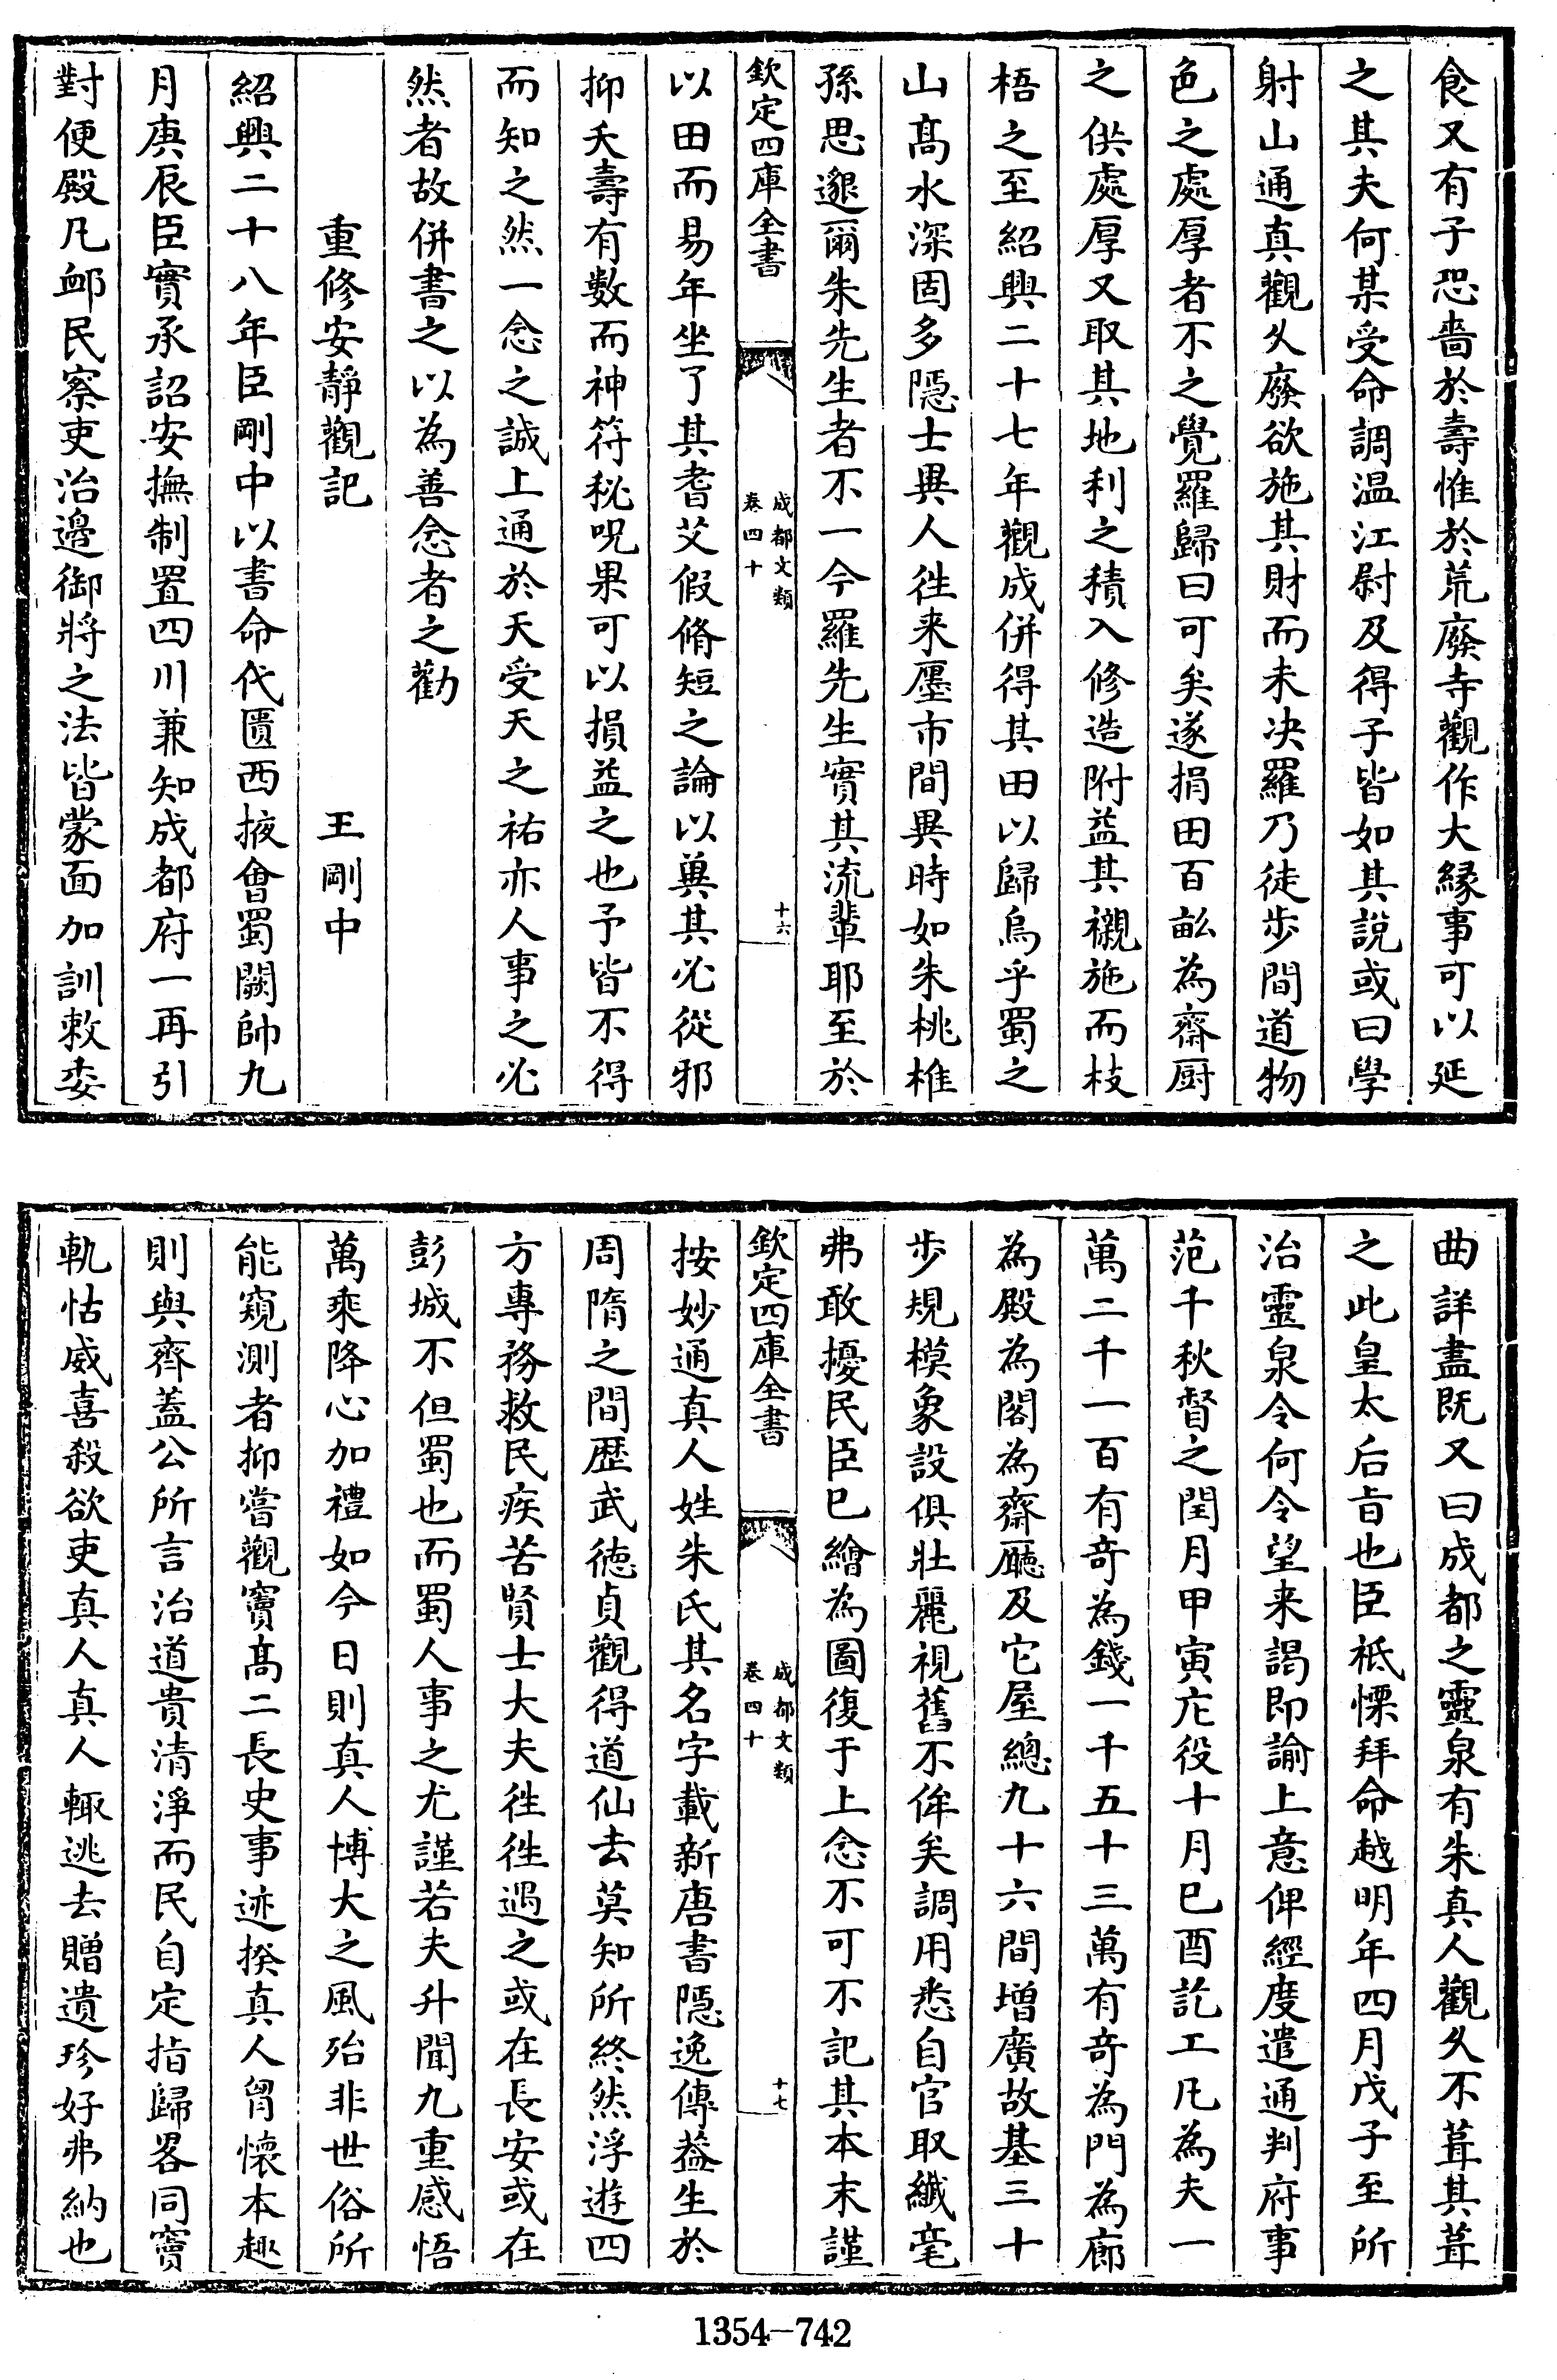 食又有子恐嗇於壽惟於荒廢寺觀作大縁事可以延
之其夫何某受命調温江尉及得子皆如其說或曰學
射山通真觀乆廢欲施其財而未决羅乃徒歩間道物
色之處厚者不之覺羅歸曰可矣遂捐田百畝為齋厨
之供處厚又取其地利之積入修造附益其襯施而枝
梧之至紹興二十七年觀成併得其田以歸烏乎蜀之
山髙水深固多隠士異人徃来廛市間異時如朱桃椎
孫思邈爾朱先生者不一今羅先生實其流輩耶至於
欽定四庫全書
成都文類
卷四十
十六
以田而易年坐了其耆艾假脩短之論以冀其必從邪
抑夭壽有數而神符秘呪果可以損益之也予皆不得
而知之然一念之誠上通於天受天之祐亦人事之必
然者故併書之以為善念者之勸
重修安靜觀記
王剛中
紹興二十八年臣剛中以書命代匱西掖會蜀闕帥九
月庚辰臣實承詔安撫制置四川兼知成都府一再引
對便殿凡䘏民察吏治邊御將之法皆蒙面加訓敕委
曲詳盡既又曰成都之靈泉有朱真人觀乆不葺其葺
之此皇太后㫖也臣祇慄拜命越明年四月戊子至所
治靈泉令何令望来謁即諭上意俾經度遣通判府事
范千秋督之閏月甲寅庀役十月己酉訖工凡為夫一
萬二千一百有奇為錢一千五十三萬有奇為門為廊
為殿為閣為齋廳及它屋總九十六間增廣故基三十
歩規模象設俱壯麗視舊不侔矣調用悉自官取纎毫
弗敢擾民臣已繪為圖復于上念不可不記其本末謹
欽定四庫全書
成都文類
卷四十
十七
按妙通真人姓朱氏其名字載新唐書隠逸傳葢生於
周隋之間歴武徳貞觀得道仙去莫知所終然浮遊四
方專務救民疾苦賢士大夫徃徃遇之或在長安或在
彭城不但蜀也而蜀人事之尤謹若夫升聞九重感悟
萬乘降心加禮如今日則真人博大之風殆非世俗所
能窺測者抑嘗觀竇髙二長史事迹揆真人胷懐本趣
則與齊蓋公所言治道貴清淨而民自定指歸畧同竇
軌怙威喜殺欲吏真人真人輙逃去贈遺珍好弗納也
1354-742